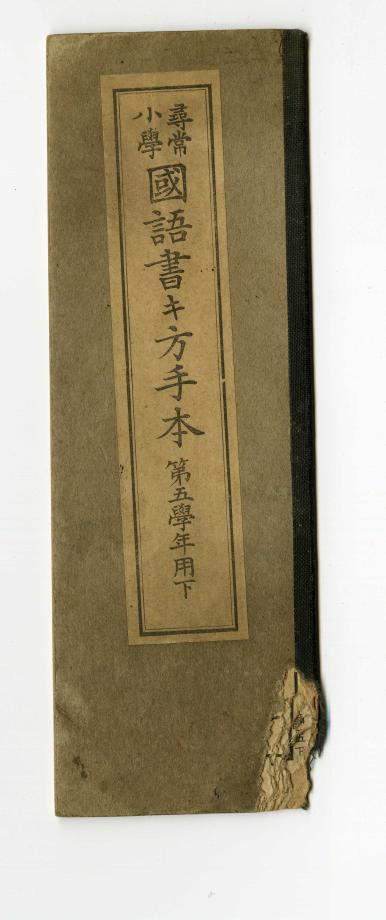 尋常
小學
國語書キ方手本 第五學年用下
五下